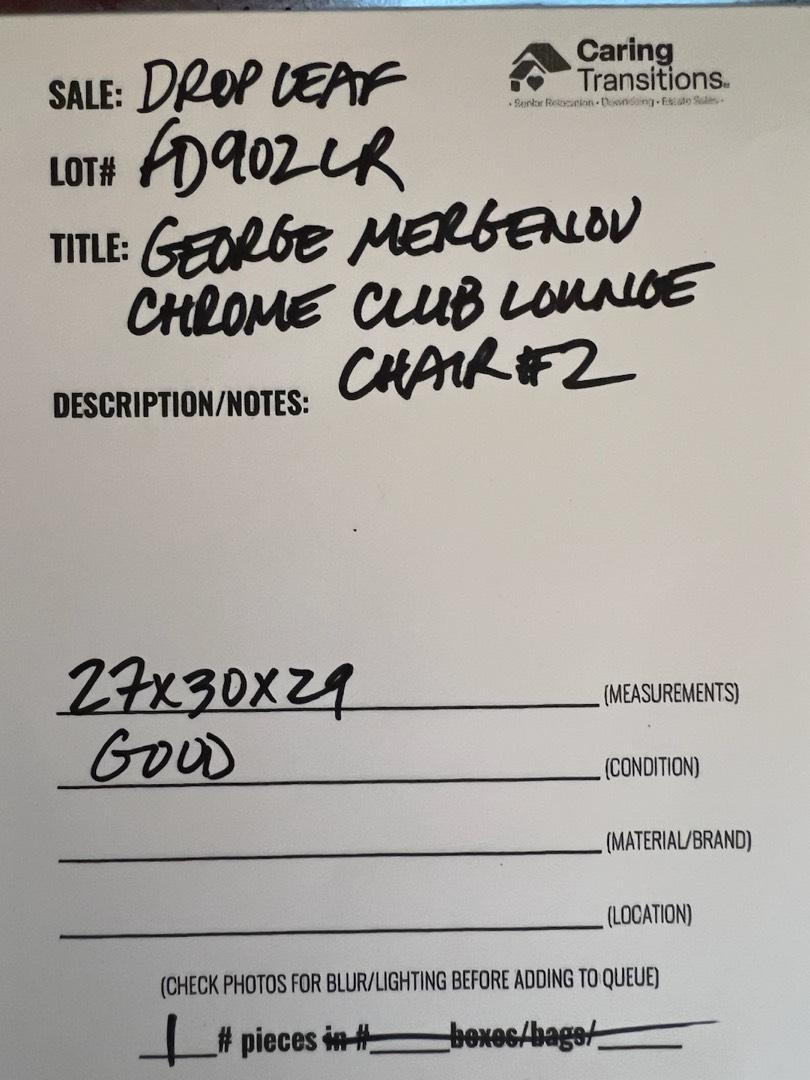 Caring
Transitions
• Senior Relocation • Downsizing • Estate Sales •
SALE: DROP LEAF
LOT# FD902LR
TITLE: GEORGE MERGENOV
CHROME CLUB LOUNGE
CHAIR #2
DESCRIPTION/NOTES:
27X30X29 (MEASUREMENTS)
GOOD (CONDITION)
(MATERIAL/BRAND)
(LOCATION)
(CHECK PHOTOS FOR BLUR/LIGHTING BEFORE ADDING TO QUEUE)
1 # pieces in # boxes/bags/